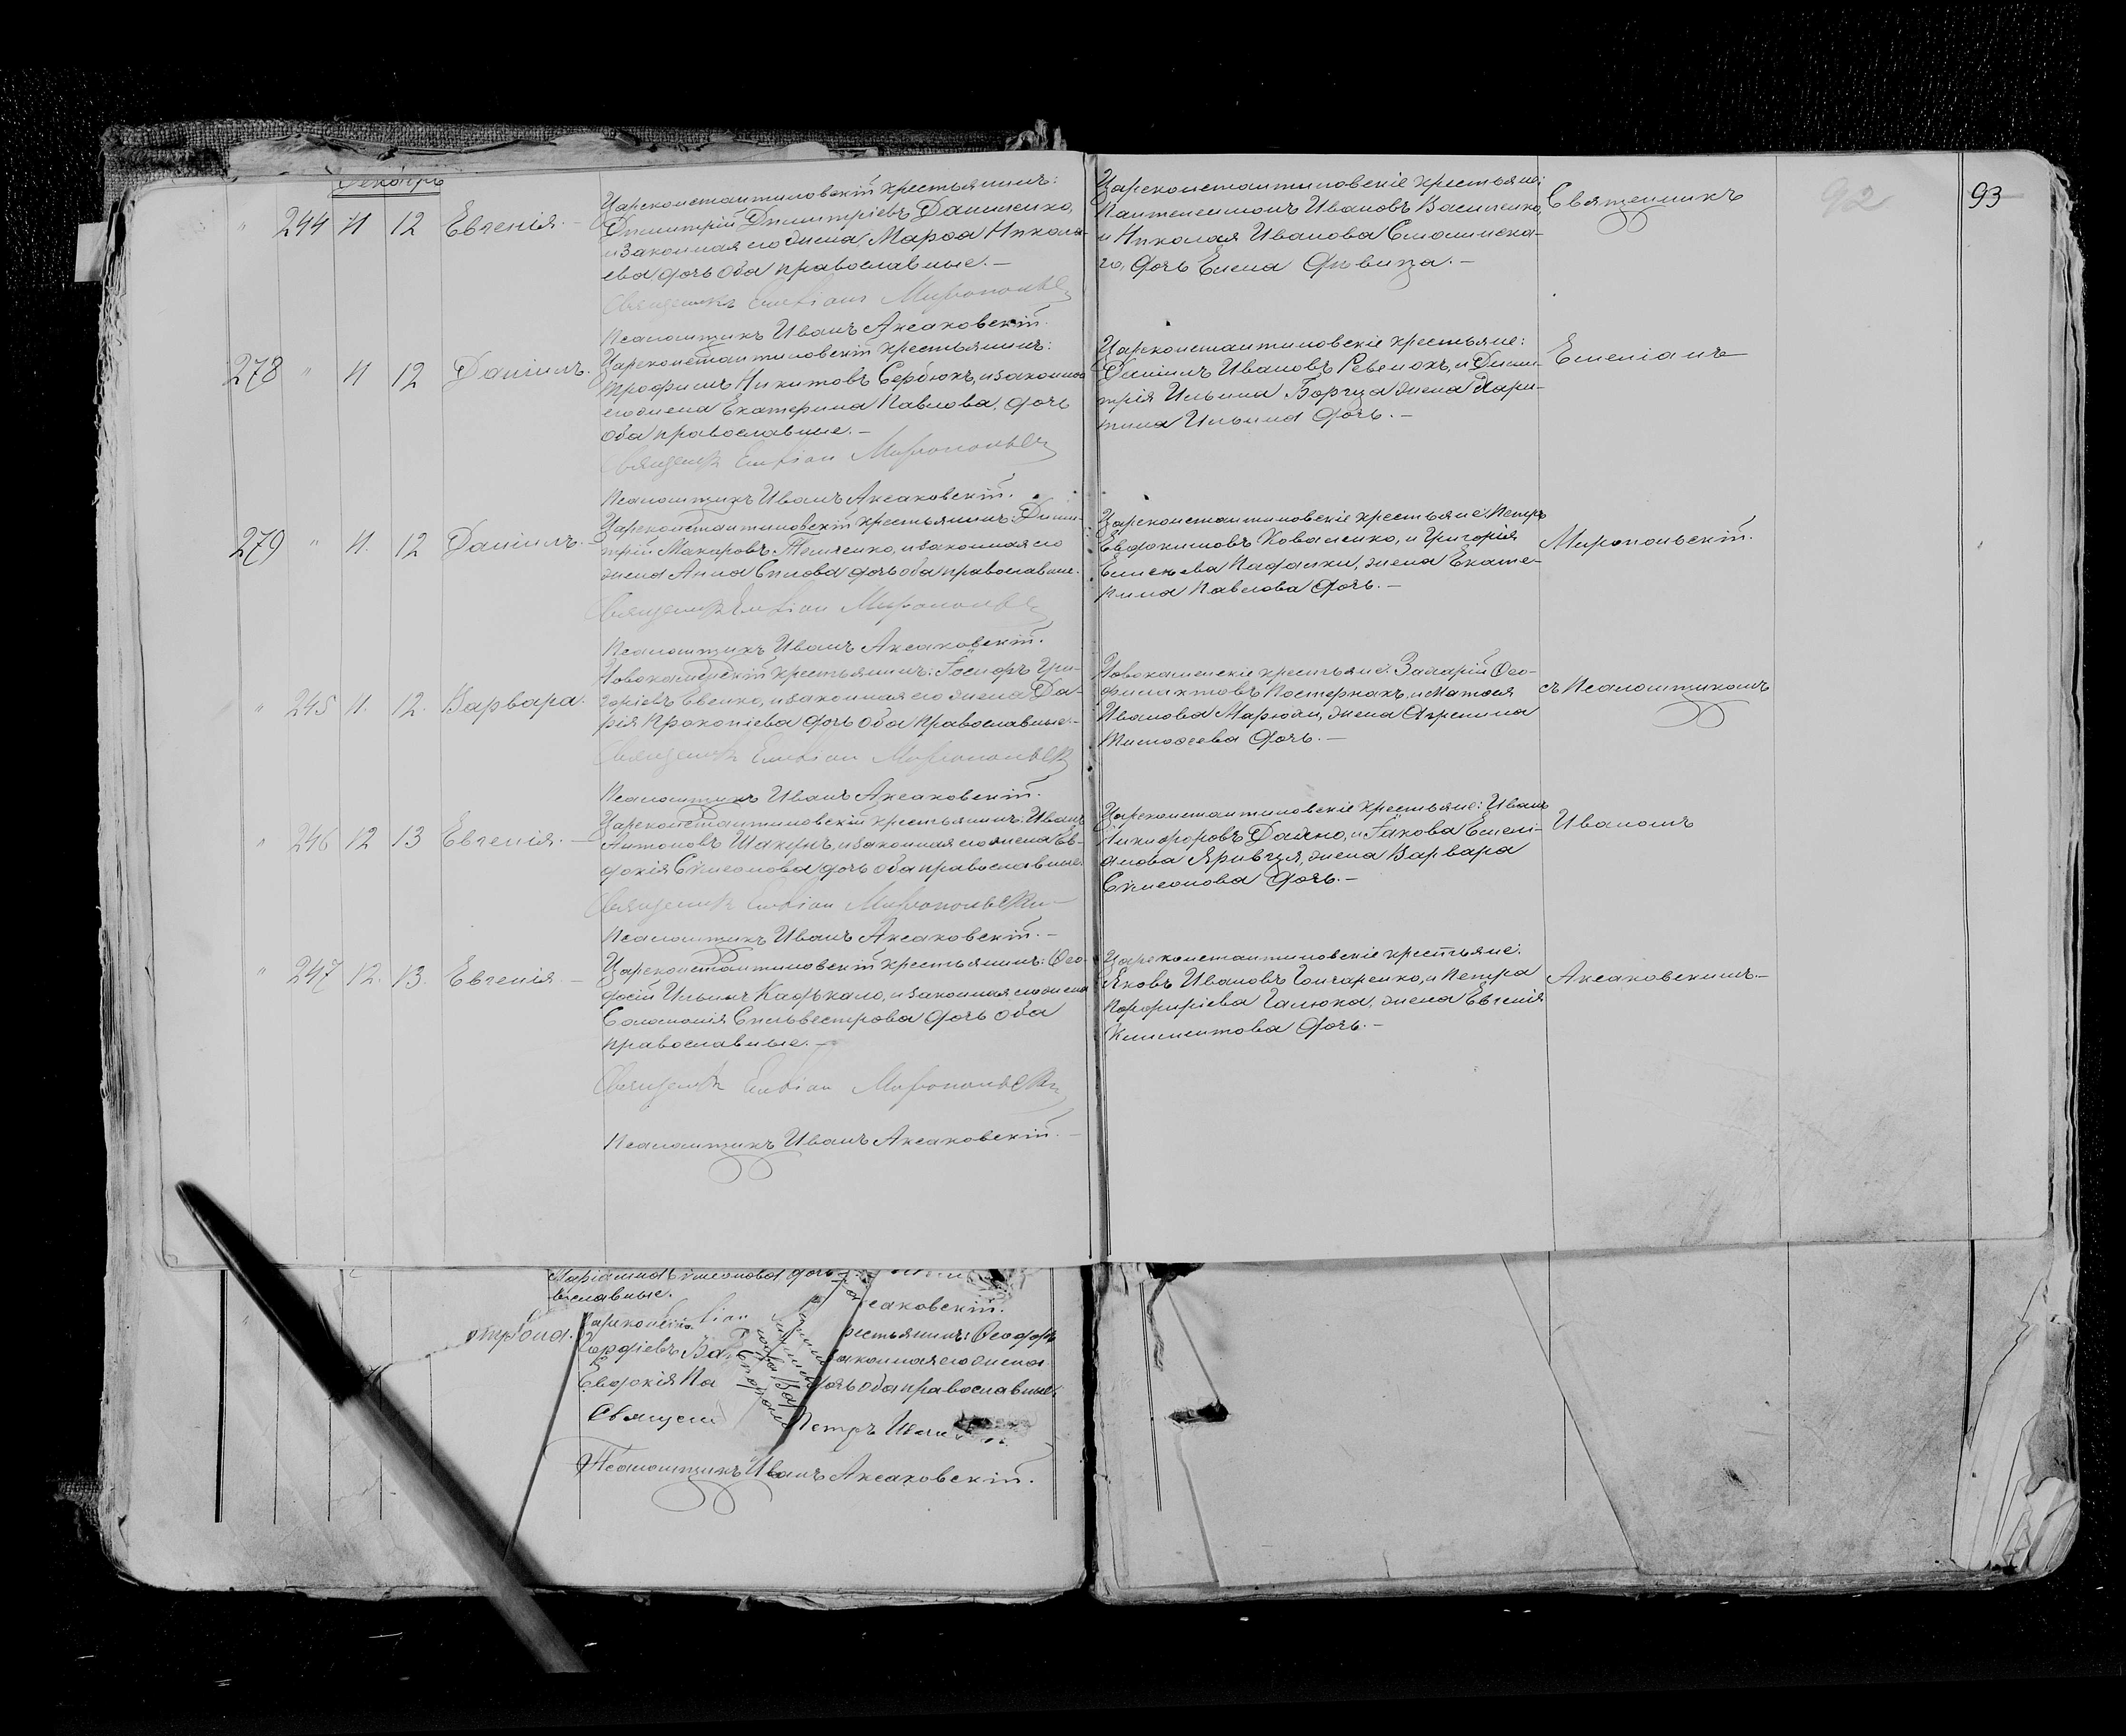 Декабрь
" 244 11 12 Евгенія. —
Цареконстантиновскій крестьянинъ:
Димитрій Димитріевъ Даниленко,
и законная его жена Марѳа Никола-
ева дочь оба православные. —
Священникъ Емеліанъ Миропольскій
Псаломщикъ Иванъ Аксаковскій.
Цареконстантиновскіе крестьяне:
Пантелеимонъ Ивановъ Василенко,
и Николая Иванова Смолинска-
го, дочь Елена дѣвица. —
Священникъ
92
93
278 " 11 12 Даніилъ.
Цареконстантиновскій крестьянинъ:
Трофимъ Никитовъ Сердюкъ, и законная
его жена Екатерина Павлова, дочь
оба православные. —
Священникъ Емеліанъ Миропольскій
Псаломщикъ Иванъ Аксаковскій.
Цареконстантиновскіе крестьяне:
Даніилъ Ивановъ Ревенокъ, и Дими-
трія Ильина Борща жена Хари-
тина Ильина дочь. —
Емеліанъ
279 " 11. 12 Даніилъ. —
Цареконстантиновскій крестьянинъ: Дими-
трій Макаровъ Тесленко, и законная его
жена Анна Силова дочь оба православные.
Священникъ Емеліанъ Миропольскій
Псаломщикъ Иванъ Аксаковскій.
Цареконстантиновскіе крестьяне: Петръ
Евдокимовъ Коваленко, и Григорія
Елисѣева Падалки, жена Екате-
рина Павлова дочь. —
Миропольскій.
" 245 11. 12. Варвара.
Новокаменскій крестьянинъ: Іосифъ Гри-
горіевъ Евенко, и законная его жена Да-
рія Прокопіева дочь оба православные. —
Священникъ Емеліанъ Миропольскій
Псаломщикъ Иванъ Аксаковскій.
Новокаменскіе крестьяне: Захарій Ѳео-
филактовъ Постернакъ, и Матѳея
Иванова Марюхи, жена Агрепина
Тимоѳеева дочь. —
съ Псаломщикомъ
" 246 12 13 Евгенія. —
Цареконстантиновскій крестьянинъ: Иванъ
Антоновъ Шакунъ, и законная его жена Ев-
докія Симеонова дочь оба православные.
Священникъ Емеліанъ Миропольскій
Псаломщикъ Иванъ Аксаковскій. —
Цареконстантиновскіе крестьяне: Иванъ
Никифоровъ Дахно, и Іакова Емелі-
анова Яривчуя, жена Варвара
Симеонова дочь. —
Иваномъ
" 247 12. 13. Евгенія —
Цареконстантиновскій крестьянинъ: Ѳео-
досій Ильинъ Кадькало, и законная его жена
Соломонія Сильвестрова дочь оба
православные. —
Священникъ Емеліанъ Миропольскій
Псаломщикъ Иванъ Аксаковскій. —
Цареконстантиновскіе крестьяне:
Яковъ Ивановъ Гончаренко, и Петра
Порфиріева Галюка, жена Евгенія
Климентова дочь. —
Аксаковскимъ. —
Симеонова дочь
вославные.
саковскій.
Цареконст
рестьянинъ: Ѳеодоръ
Гордіевъ
законная его жена
Евдокія Па
дочь оба православные
Священ
Петръ
Псаломщикъ Иванъ Аксаковскій.